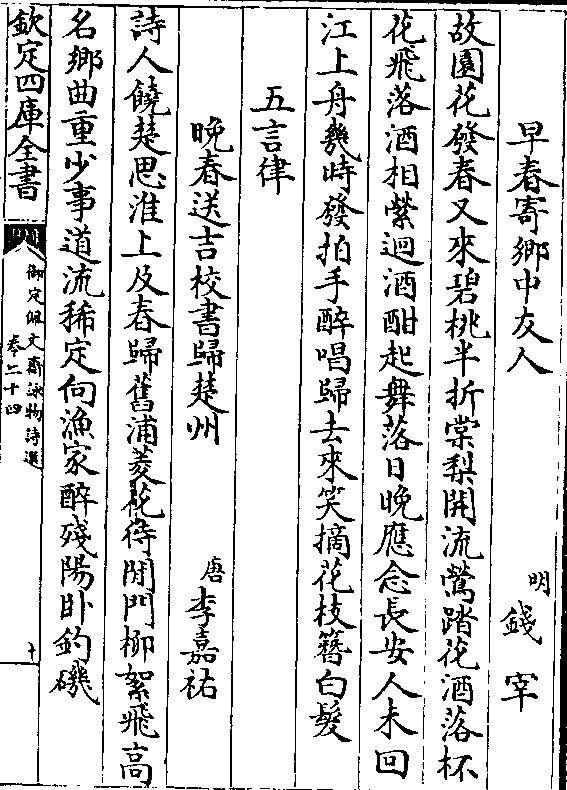 早春寄鄉中友人
明 錢宰
故園花發春又來碧桃半折棠梨開流鶯踏花酒落杯
花飛落酒相縈迴酒酣起舞落日晚應念長安人未回
江上舟幾時發拍手醉唱歸去來笑摘花枝簪白髮
五言律
晚春送吉校書歸楚州
唐 李嘉祐
詩人饒楚思淮上及春歸舊浦菱花待閉門柳絮飛高
名鄉曲重少事道流稀定向漁家醉殘陽卧釣磯
欽定四庫全書
御定佩文齋詠物詩選
卷二十四
十